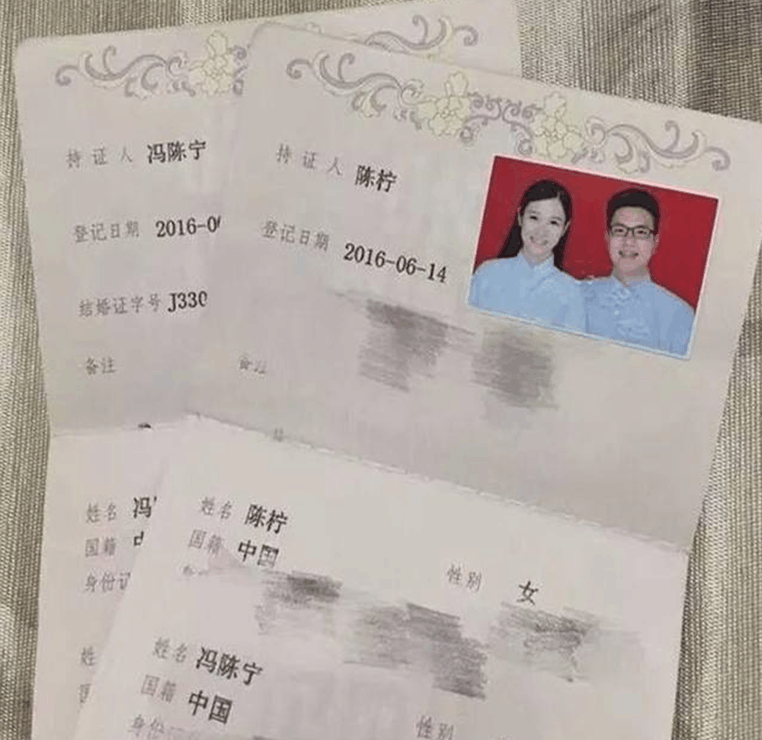 持证人 冯陈宁
登记日期 2016-0
结婚证字号 J330
备注
姓名 冯
国籍
身份证
姓
国
持证人 陈柠
登记日期 2016-06-14
备注
姓名 陈柠
国籍 中国 性别 女
姓名 冯陈宁
国籍 中国 性别
身份证